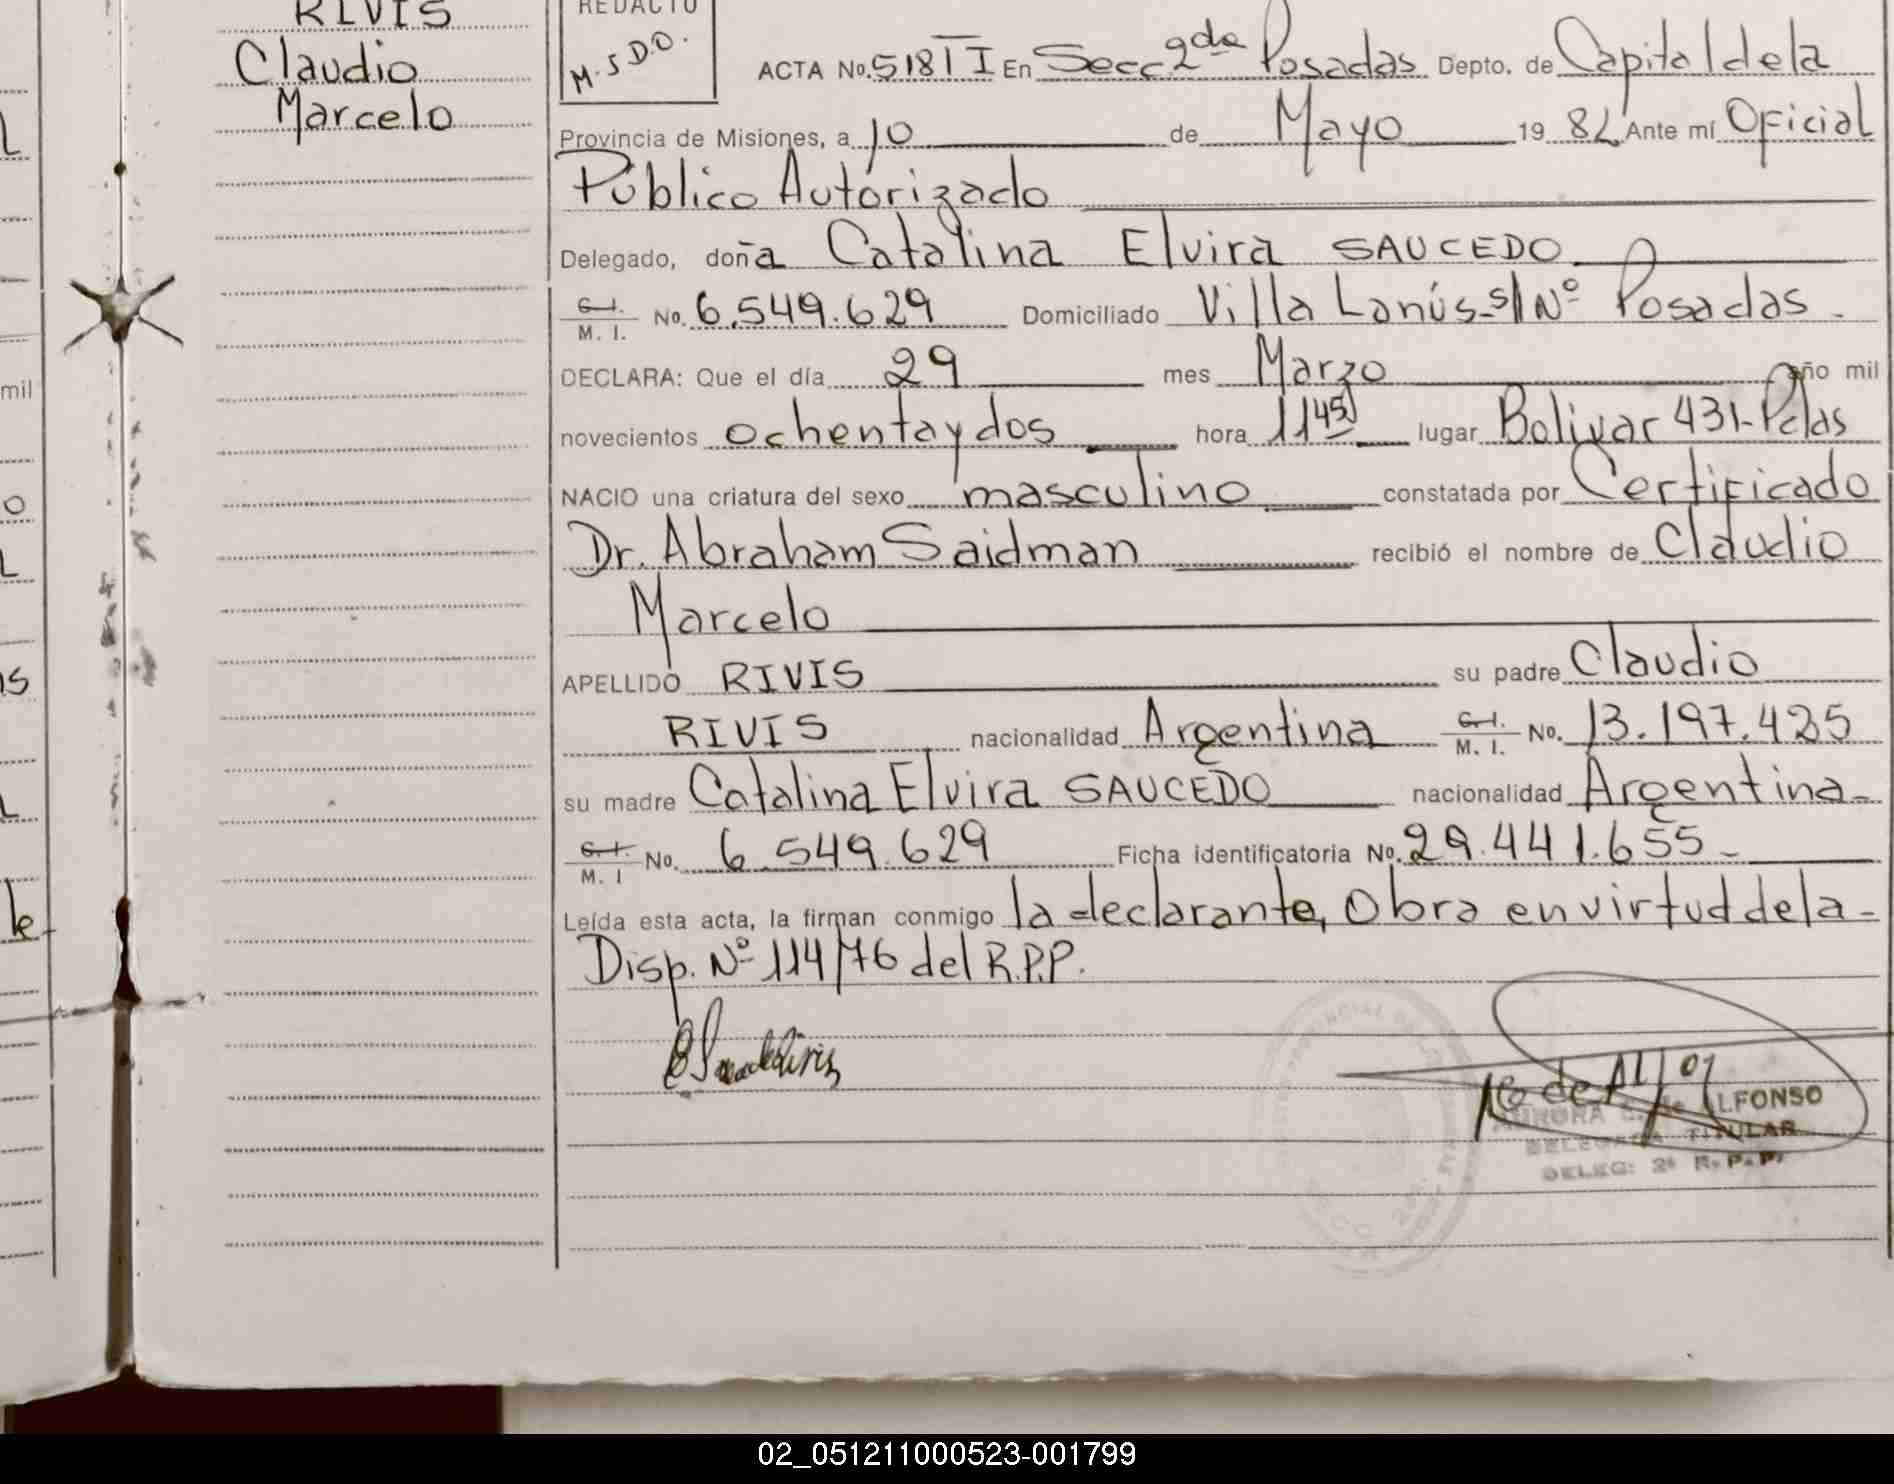 RIVIS
Claudio
Marcelo
REDACTO
M.S.D.O.
ACTA No. 518 T I En Secc. 2da Posadas Depto. de Capital de la
Provincia de Misiones, a 10 de Mayo 19 82 Ante mí Oficial
Público Autorizado
Delegado, doña Catalina Elvira SAUCEDO
C. I. M. I. No. 6.549.629 Domiciliado Villa Lanús-s/Nº Posadas.
DECLARA: Que el día 29 mes Marzo año mil
novecientos ochentaydos hora 11 45 lugar Bolivar 431-Pdas
NACIO una criatura del sexo masculino constatada por Certificado
Dr. Abraham Saidman recibió el nombre de Claudio
Marcelo
APELLIDO RIVIS su padre Claudio
RIVIS nacionalidad Argentina C. I. M. I. No. 13.197.425
su madre Catalina Elvira SAUCEDO nacionalidad Argentina-
C. I. M. I No. 6.549.629 Ficha identificatoria No. 29.441.655-
Leída esta acta, la firman conmigo la declarante, Obra en virtud de la-
Disp. Nº 114/76 del R.P.P.
ALFONSO
DELEGADA TITULAR
DELEG: 2ª R.P.P.
mil
le
02_051211000523-001799